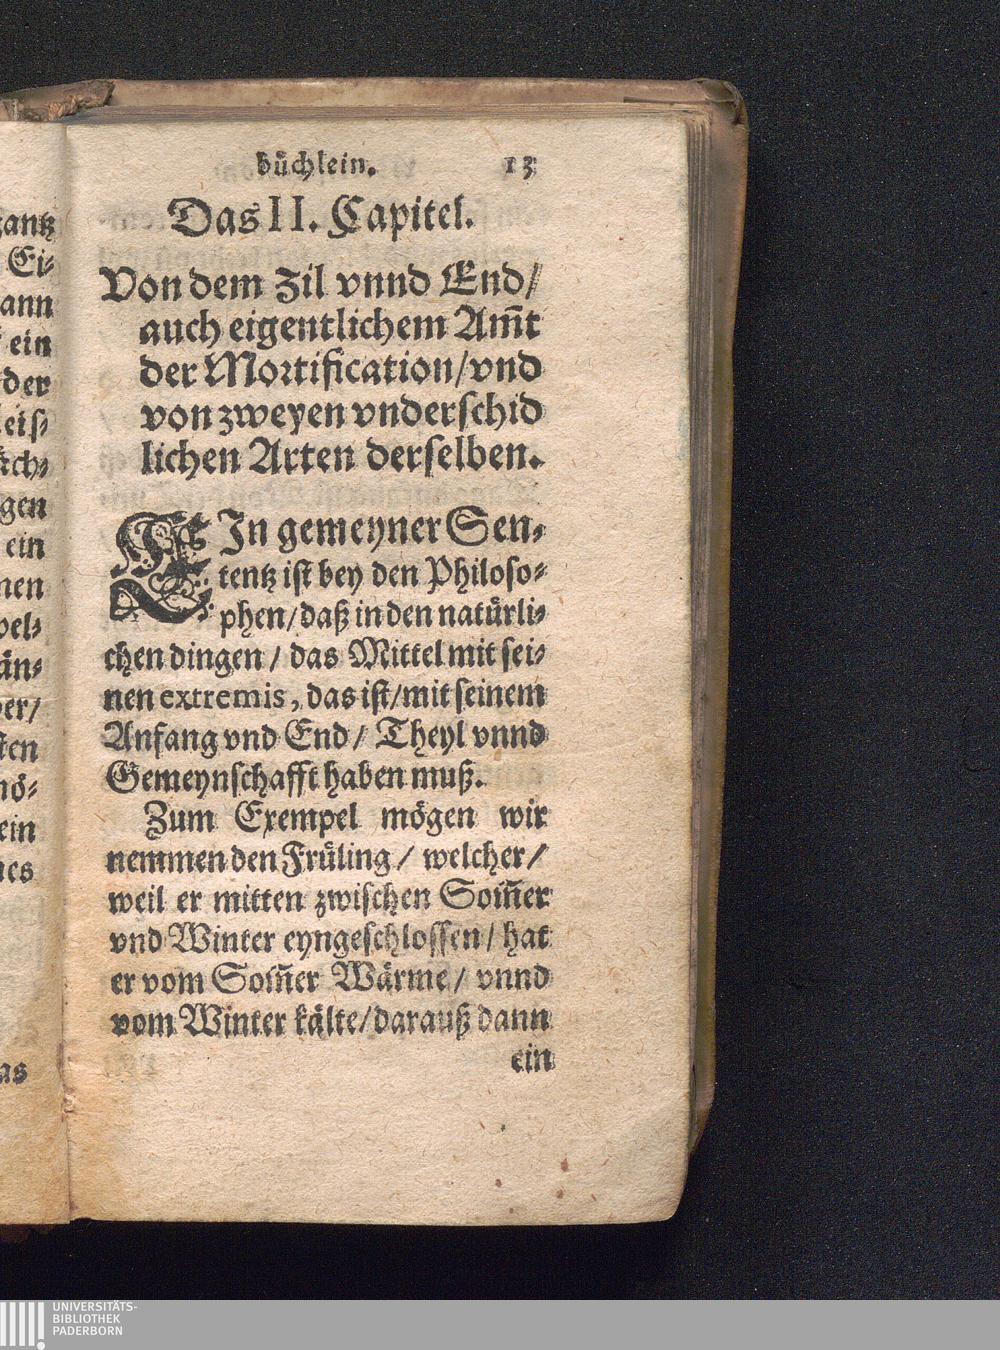 büchlein. 13
Das II. Capitel.
Von dem Zil vnnd End/
auch eigentlichem Am̃t
der Mortification/vnd
von zweyen vnderschid
lichen Arten derselben.
EJn gemeyner Sen-
tentz ist bey den Philoso-
phen/daß in den natürli-
chen dingen/ das Mittel mit sei-
nen extremis, das ist/mit seinem
Anfang vnd End/ Theyl vnnd
Gemeynschafft haben muß.
Zum Exempel mögen wir
nemmen den Früling/ welcher/
weil er mitten zwischen Som̃er
vnd Winter eyngeschlossen/ hat
er vom Som̃er Wärme/ vnnd
vom Winter kälte/darauß dann
ein
antz
Ei-
ann
ein
der
gen
ein
nen
än-
er/
ein
as
UNIVERSITÄTS-
BIBLIOTHEK
PADERBORN